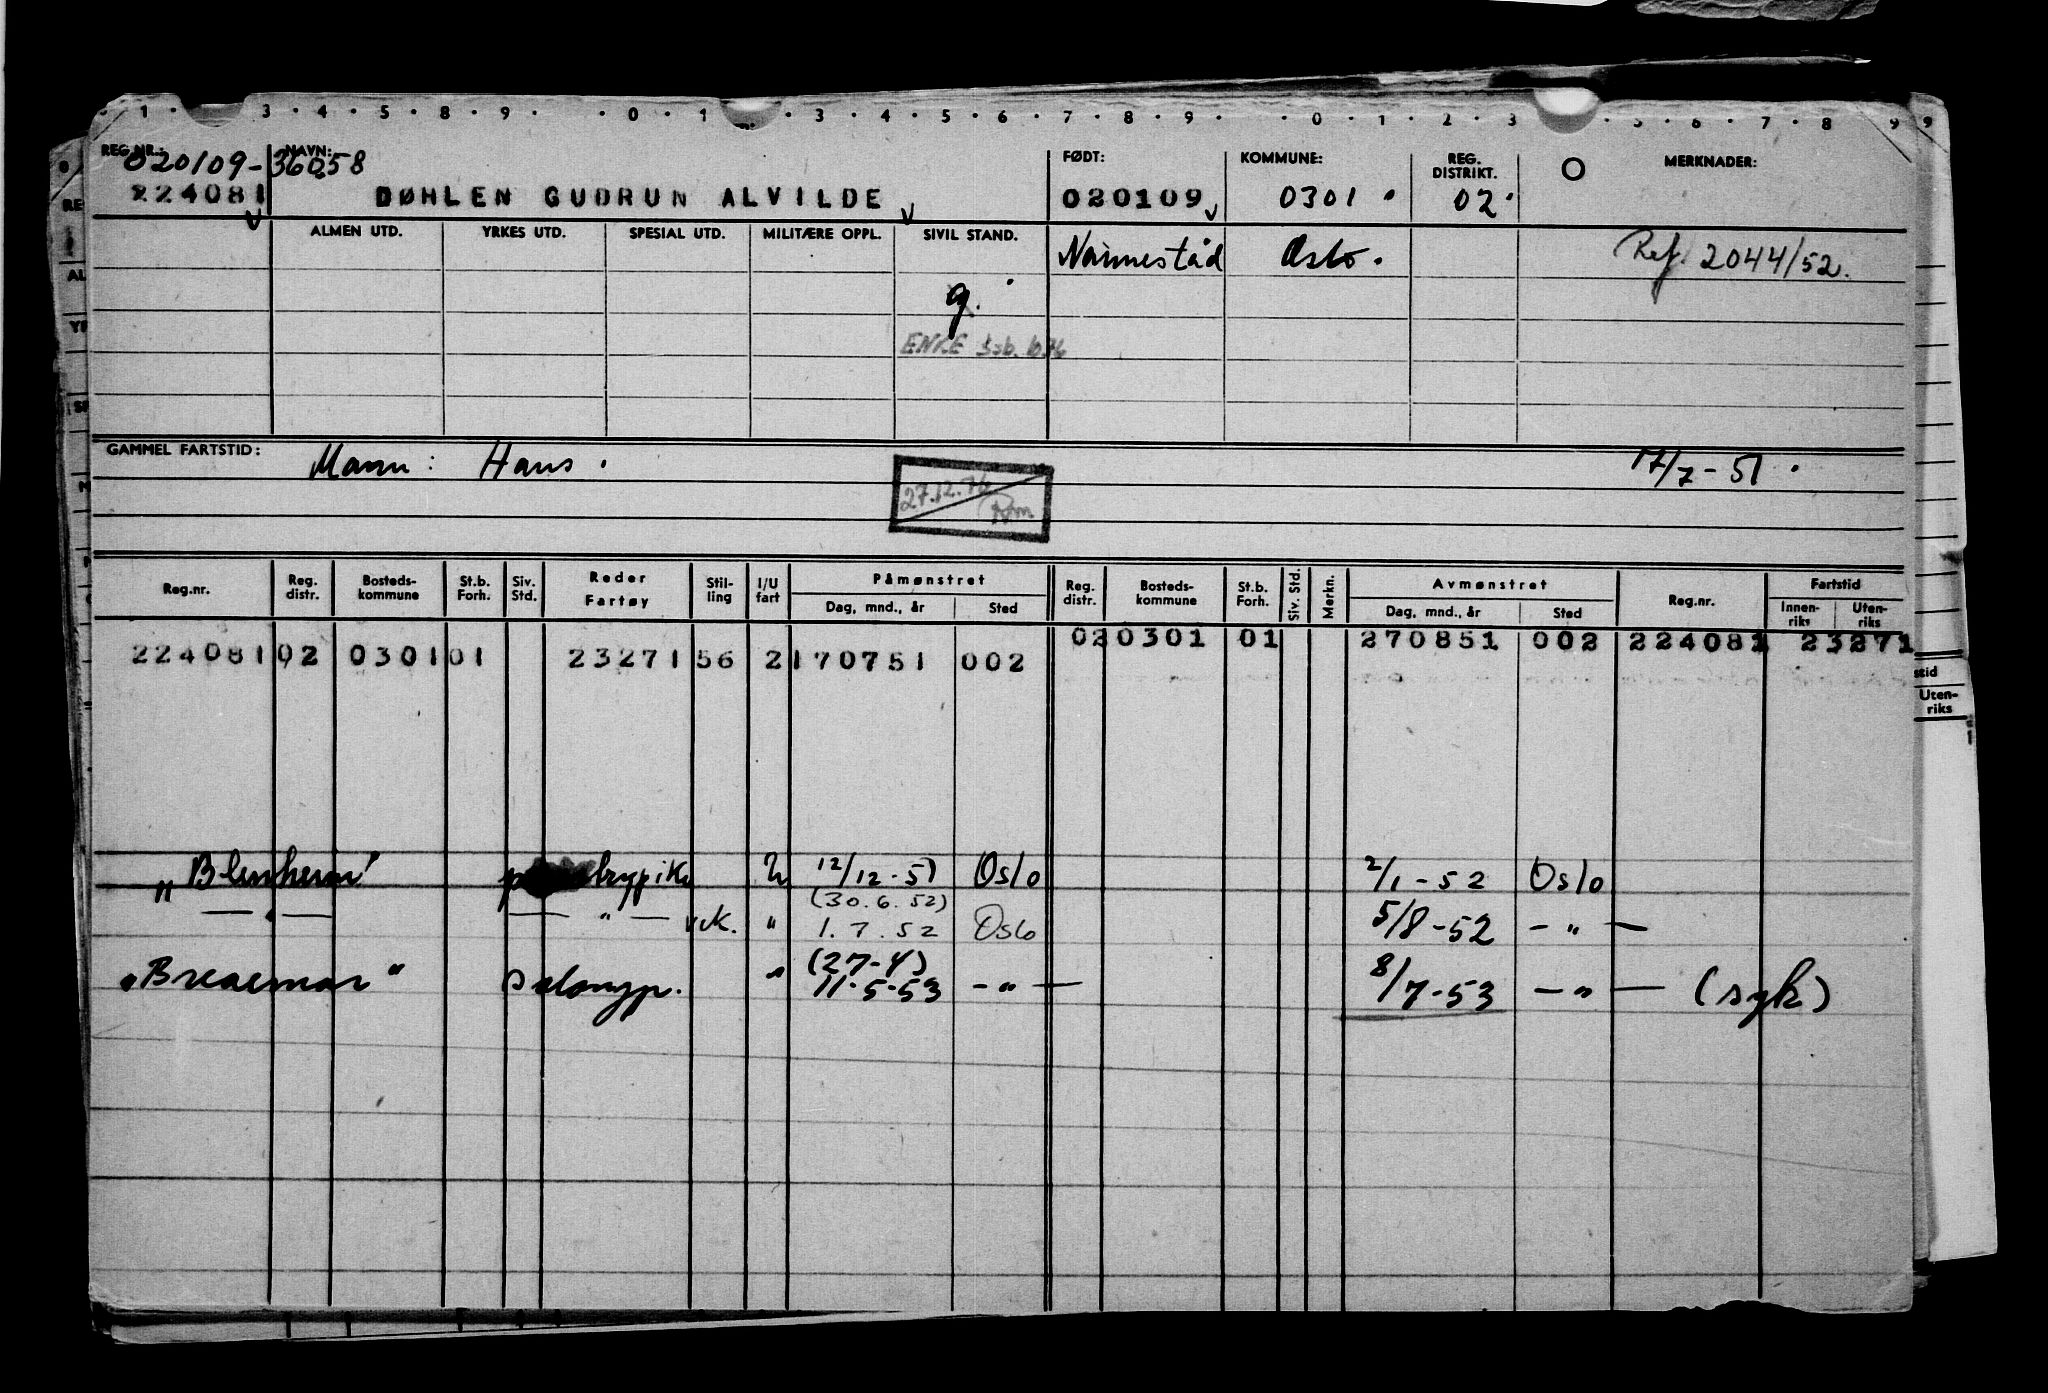 1 · 3 · 4 · 5 · 8 · 9 · · 0 · 1 · · 3 · 4 · 5 · 6 · 7 · 8 · 9 · · 0 · 1 · 2 · 3 · 5 · 6 · 7 · 8 · 9 9
REG.NR.: NAVN: FØDT: KOMMUNE: REG. DISTRIKT. O MERKNADER:
020109-36058
224081 DØHLEN GUDRUN ALVILDE 020109 0301 . 02.
ALMEN UTD. YRKES UTD. SPESIAL UTD. MILITÆRE OPPL. SIVIL STAND. Oslo. Ref. 2044/52.
g.
ENKE
GAMMEL FARTSTID: Mann: Hans. 17/7-51.
27.12.76
Reg.nr. Reg. distr. Bosteds- kommune St.b. Forh. Siv. Std. Reder Fartøy Stil- ling I/U fart Påmønstret Dag, mnd., år Sted Reg. distr. Bosteds- kommune St.b. Forh. Siv. Std. Merkn. Avmønstret Dag, mnd., år Sted Reg.nr. Fartstid Innen- riks Uten- riks
020301 01 270851 002 224081 23271
224081 02 0301 01 23271 56 2 170751 002
stid
Uten-
riks
"Blenheim" U 12/12-51 Oslo 2/1-52 Oslo
(30.6.52)
— " — — " — vik. " 1.7.52 Oslo 5/8-52 — " —
(27-4)
"Breaemar" Salongp. " 11-5-53 — " — 8/7-53 — " — (syk)